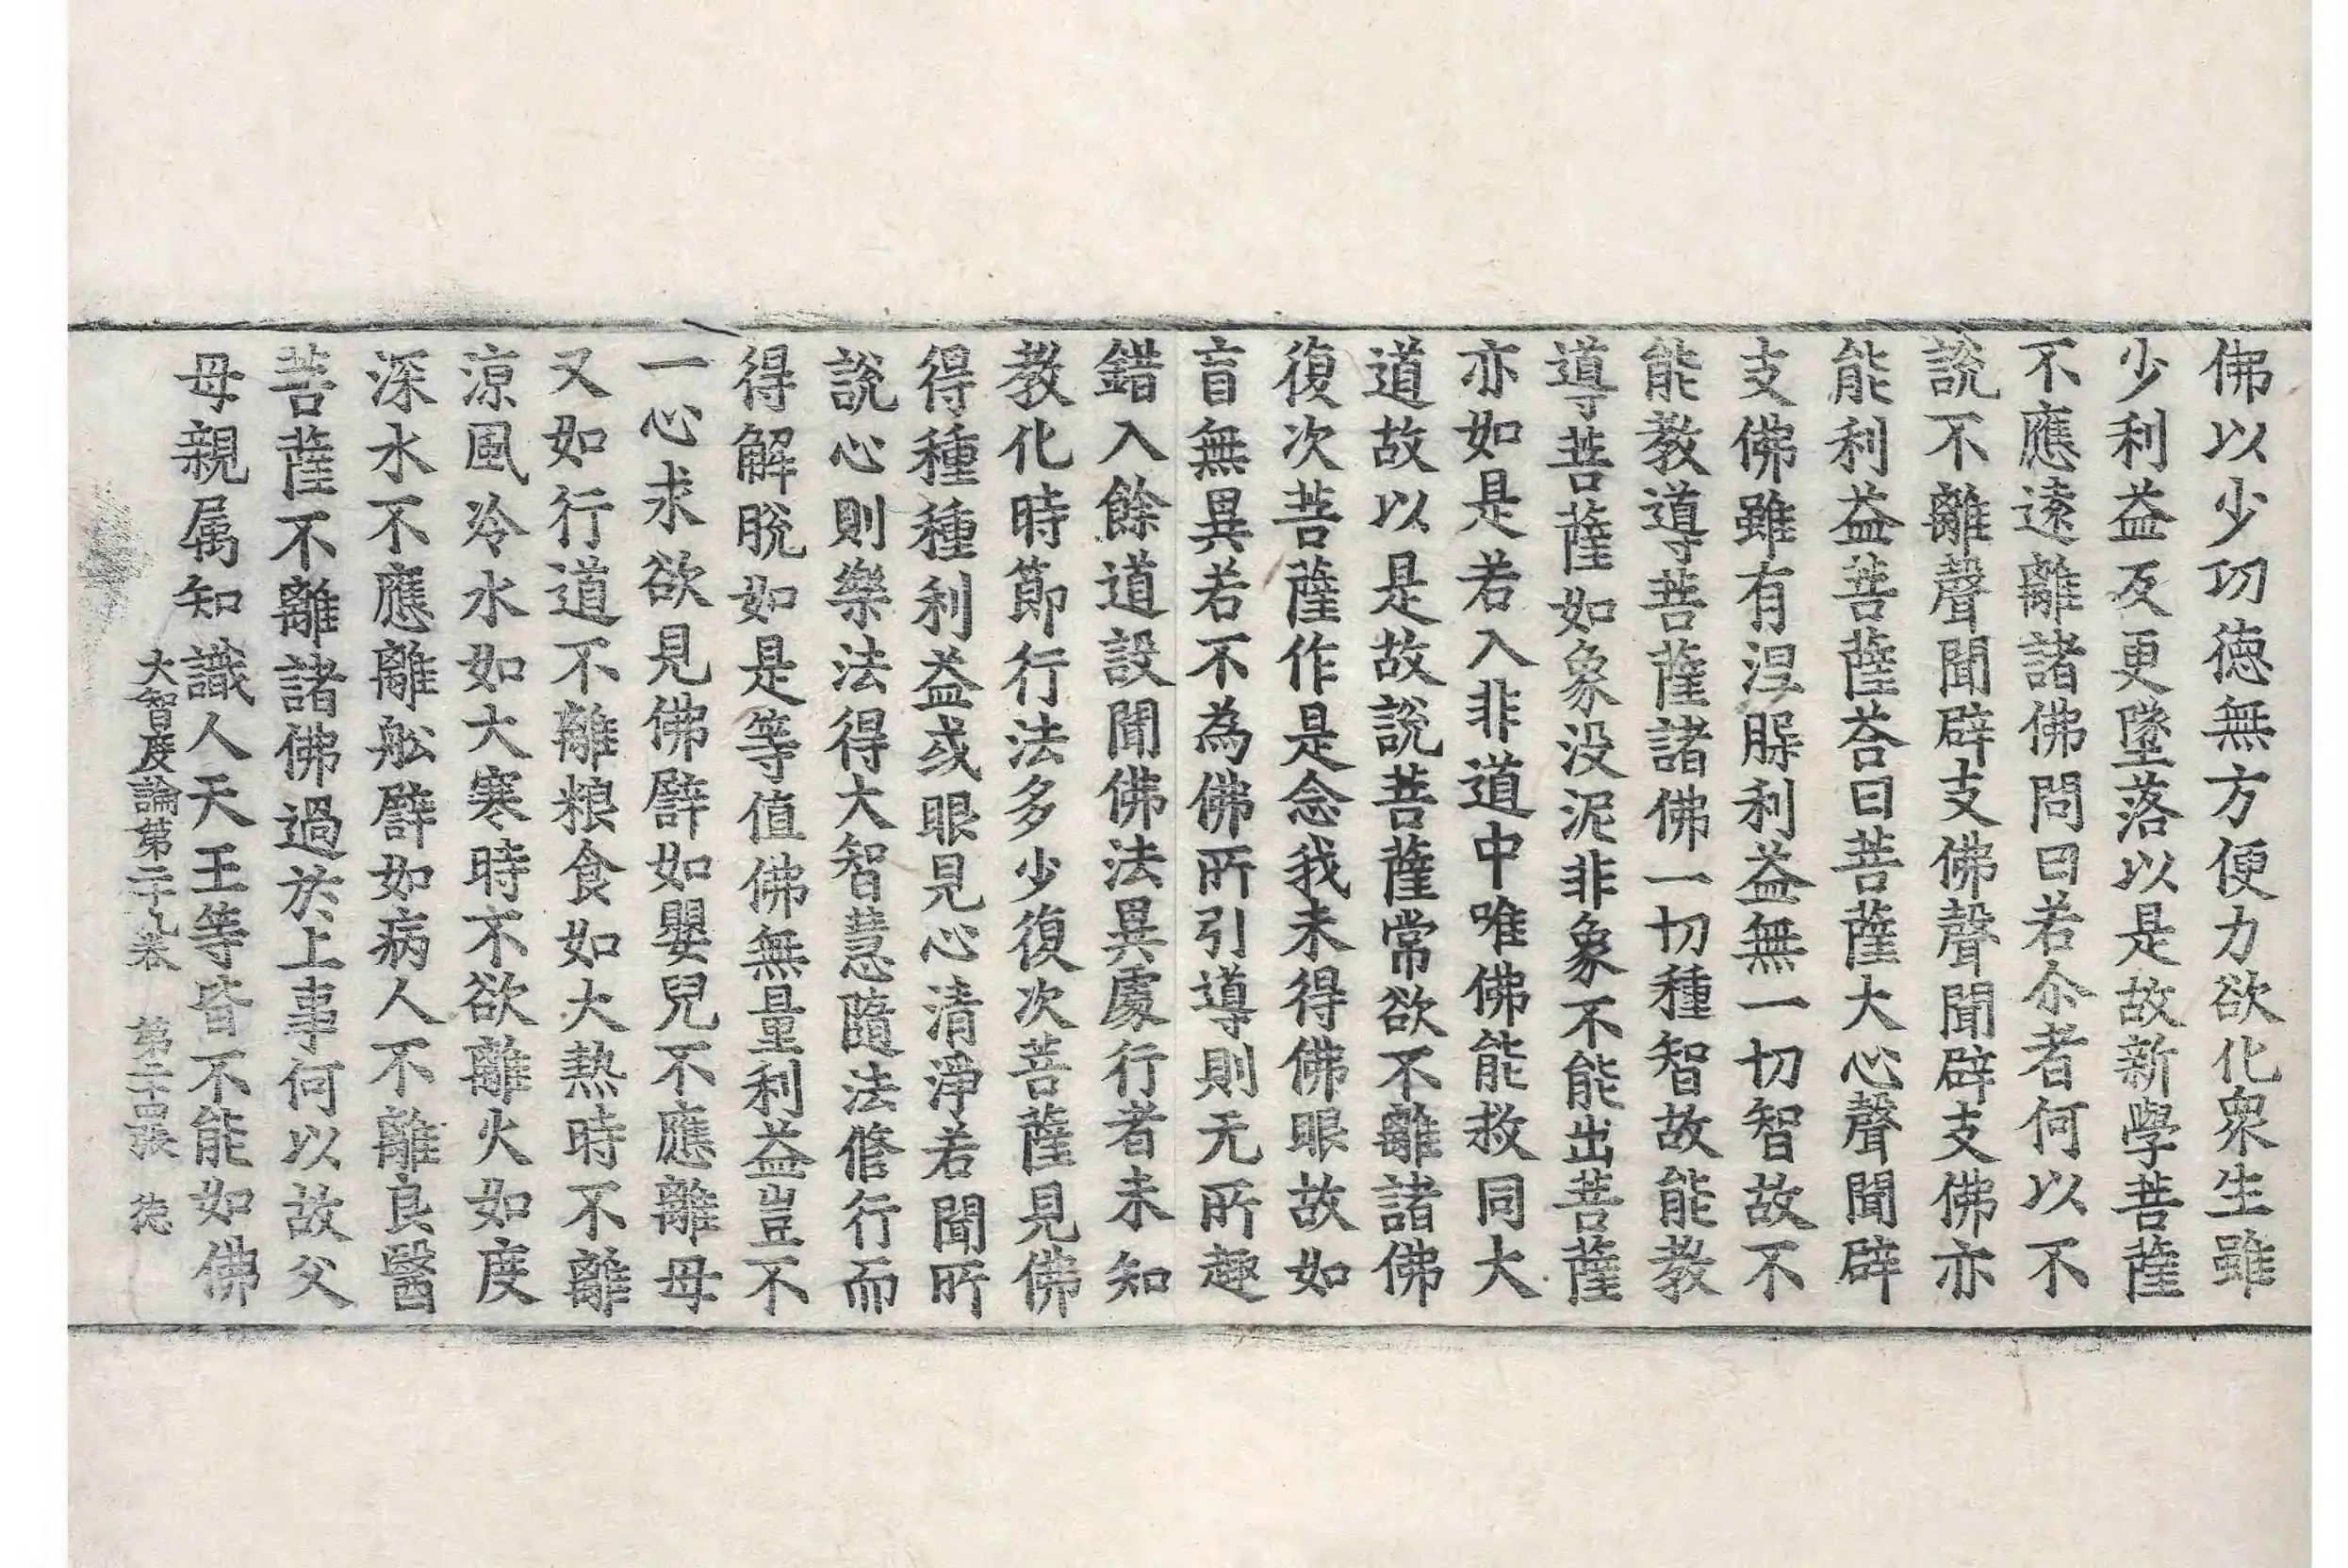 佛以少功徳無方便力欲化衆生雖
少利益反更墜落以是故新學菩薩
不應遠離諸佛問曰若尒者何以不
說不離聲聞辟支佛聲聞辟支佛亦
能利益菩薩荅曰菩薩大心聲聞辟
支佛雖有涅槃利益無一切智故不
能教導菩薩諸佛一切種智故能教
導菩薩如象没泥非象不能出菩薩
亦如是若入非道中唯佛能救同大
道故以是故說菩薩常欲不離諸佛
復次菩薩作是念我未得佛眼故如
盲無異若不為佛所引導則无所趣
錯入餘道設聞佛法異處行者未知
教化時節行法多少復次菩薩見佛
得種種利益或眼見心清淨若聞所
說心則樂法得大智慧隨法脩行而
得解脫如是等值佛無量利益豈不
一心求欲見佛譬如嬰兒不應離母
又如行道不離粮食如大熱時不離
涼風冷水如大寒時不欲離火如度
深水不應離舩譬如病人不離良醫
菩薩不離諸佛過於上事何以故父
母親属知識人天王等皆不能如佛
大智度論第二十九卷 第二十四張 徳